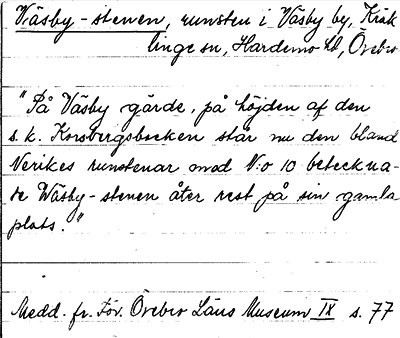 Wäsby-stenen, runsten i Väsby by, Kräk
linge sn, Hardemo hd, Örebro
"På Väsby gärde, på höjden af den
s.k. Korsbergsbacken står nu den bland
Nerikes runstenar med N:o 10 beteckna-
de Wäsby-stenen åter rest på sin gamla
plats."
Medd. fr. För. Örebro Läns Museum IX s. 77